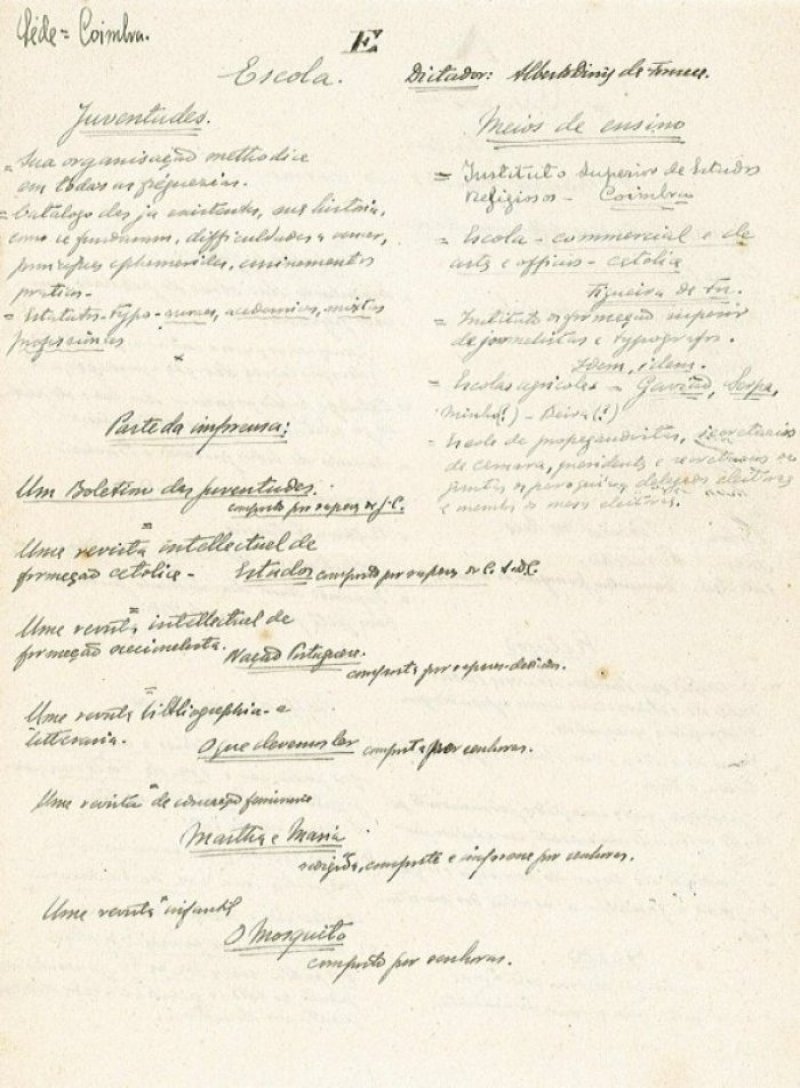 Séde = Coimbra.
E
Escola.
Dictador: Alberto Dinis da
Juventudes.
= Sua organisação methodica
em todas as fréguezias.
= Catalogo das ja existentes, sua historia,
como se fundaram, difficuldades a vencer,
principaes ephemerides, ensinamentos
praticos -
= Estatutos-typo - ruraes, academicos, mixtas
profissionaes
Meios de ensino
= Instituto Superior de Estudos
Religiosos - Coimbra
= Escola - commercial e de
artes e officios - catolica
Figueira da Foz.
= Instituto de formação superior
de jornalistas e typografos.
Idem, idem.
= Escolas agricolas - Gavião, Serpa,
Minho(?) - Beira(?)
= Escola de propagandistas, secretarios
de camara, presidentes e secretarios de
juntas de paroquias, delegados eleitoraes
e membros de mesas eleitoraes.
Parte da imprensa:
Um Boletim das juventudes.
composto por rapazes de J.C.
Uma revista intellectual de
formação catolica - Estudos composto por rapazes do C.A.D.C.
Uma revista intellectual de
formação nacionalista. Nação Portuguesa.
composta por rapazes
Uma revista bibliographia - e
litteraria. O que devemos ler composta por senhoras.
Uma revista de formação feminina
Martha e Maria
redigida, composta e impressa por senhoras.
Uma revista infantil
O Mosquito
composto por senhoras.